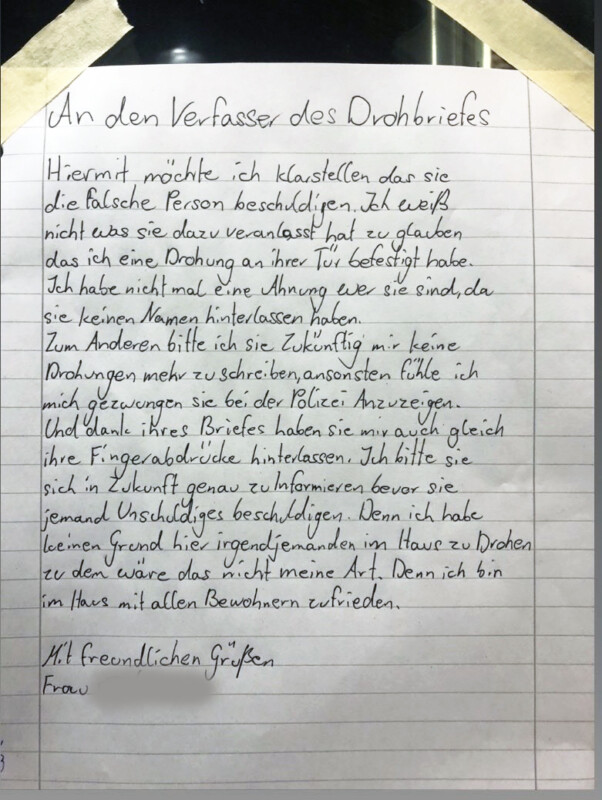 An den Verfasser des Drohbriefes
Hiermit möchte ich klarstellen das sie
die falsche Person beschuldigen. Ich weiß
nicht was sie dazu veranlasst hat zu glauben
das ich eine Drohung an ihrer Tür befestigt habe.
Ich habe nicht mal eine Ahnung wer sie sind, da
sie keinen Namen hinterlassen haben.
Zum Anderen bitte ich sie Zukünftig mir keine
Drohungen mehr zu schreiben, ansonsten fühle ich
mich gezwungen sie bei der Polizei Anzuzeigen.
Und dank ihres Briefes haben sie mir auch gleich
ihre Fingerabdrücke hinterlassen. Ich bitte sie
sich in Zukunft genau zu Informieren bevor sie
jemand Unschuldiges beschuldigen. Denn ich habe
keinen Grund hier irgendjemanden im Haus zu Drohen
zu dem wäre das nicht meine Art. Denn ich bin
im Haus mit allen Bewohnern zufrieden.
Mit freundlichen Grüßen
Frau